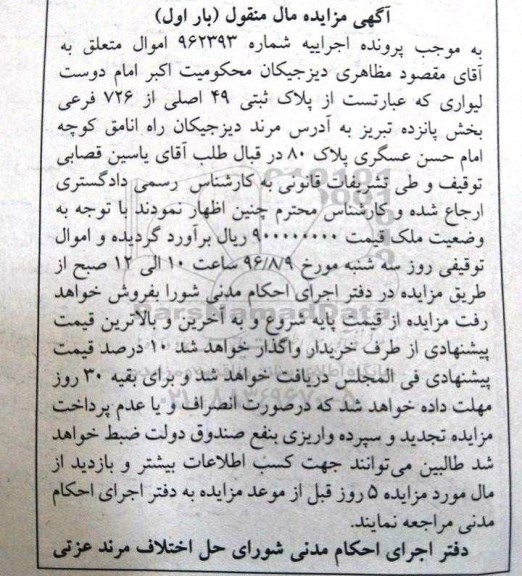 آگهی مزایده مال منقول (بار اول)
به موجب پرونده اجراییه شماره ۹۶۲۳۹۳ اموال متعلق به
آقای مقصود مظاهری دیزجیکان محکومیت اکبر امام دوست
لیواری که عبارتست از پلاک ثبتی ۴۹ اصلی از ۷۲۶ فرعی
بخش پانزده تبریز به آدرس مرند دیزجیکان راه انامق کوچه
امام حسن عسگری پلاک ۸۰ در قبال طلب آقای یاسین قصابی
توقیف و طی تشریفات قانونی به کارشناس رسمی دادگستری
ارجاع شده و کارشناس محترم چنین اظهار نمودند با توجه به
وضعیت ملک قیمت ۹۰۰۰۰۰۰۰۰ ریال برآورد گردیده و اموال
توقیفی روز سه شنبه مورخ ۹۶/۸/۹ ساعت ۱۰ الی ۱۲ صبح از
طریق مزایده در دفتر اجرای احکام مدنی شورا بفروش خواهد
رفت مزایده از قیمت پایه شروع و به آخرین و بالاترین قیمت
پیشنهادی از طرف خریدار واگذار خواهد شد ۱۰ درصد قیمت
پیشنهادی فی المجلس دریافت خواهد شد و برای بقیه ۳۰ روز
مهلت داده خواهد شد که درصورت انصراف و یا عدم پرداخت
مزایده تجدید و سپرده واریزی بنفع صندوق دولت ضبط خواهد
شد طالبین می‌توانند جهت کسب اطلاعات بیشتر و بازدید از
مال مورد مزایده ۵ روز قبل از موعد مزایده به دفتر اجرای احکام
مدنی مراجعه نمایند.
دفتر اجرای احکام مدنی شورای حل اختلاف مرند عزتی